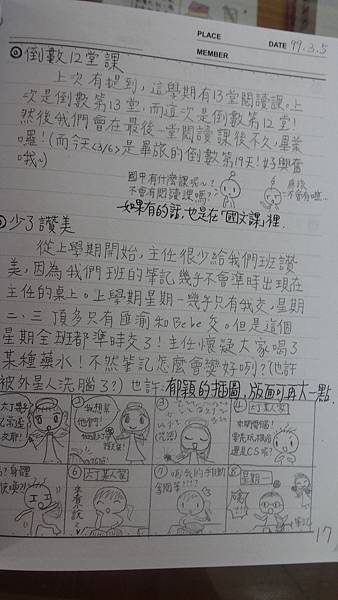 PLACE
MEMBER
DATE 99.3.5
倒數12堂課
上次有提到,這學期有13堂閱讀課。上
次是倒數第13堂,而這次是倒數第12堂!
然後我們會在最後一堂閱讀課後不久,畢業
囉!(而今天<3/6>是畢旅的倒數第19天!好興奮
哦~)
國中有什麼課呢~?
不會有閱讀課嗎?
應該
不會有吧…
如果有的話,也是在「國文課」裡.
少了讚美
從上學期開始,主任很少給我們班讚
美,因為我們班的筆記幾乎不會準時出現在
主任的桌上。上學期星期一幾乎只有我交,星期
二、三頂多只有匯渝和Bebe交。但是這個
星期全班都準時交了!主任懷疑大家喝了
某種藥水!不然筆記怎麼會變好咧?(也許
被外星人洗腦了?)也許:郁穎的插圖,版面可再大一點.
我想幫
他們!
③
④
六丁某人家
還是CS呢?
⑥
來看小說
⑦
⑧
星期一
17